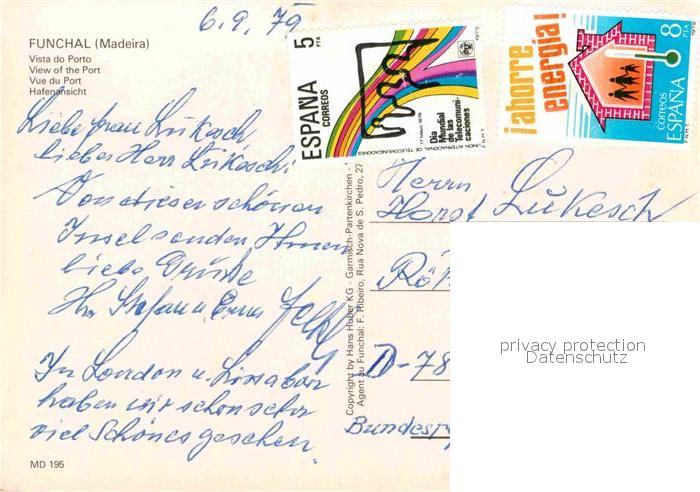 6.9.79
FUNCHAL (Madeira)
Vista do Porto
View of the Port
Vue du Port
Hafenansicht
Liebe Frau Lukesch,
lieber Herr Lukesch!
Von dieser schönen
Insel senden Ihnen
liebe Grüße
Ihr Stefan u. Erna
In London u. Lissabon
haben wir schon sehr
viel Schönes gesehen.
MD 195
Copyright by Hans Huber KG - Garmisch-Partenkirchen -
Agent au Funchal: F. Ribeiro, Rua Nova de S. Pedro, 27
5 PTA
ESPAÑA
CORREOS
Día
Mundial
de las
Telecomuni-
caciones
17 Mayo 1979
UNION INTERNACIONAL DE TELECOMUNICACIONES
F.N.M.T.
1979
¡ahorre
energía!
8 PTA
correos
ESPAÑA
F.N.M.T.
1979
Herrn
Horst Lukesch
Rö
D-78
Bundesr
privacy protection
Datenschutz